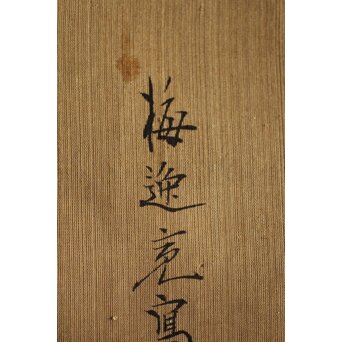 梅逸亮寫